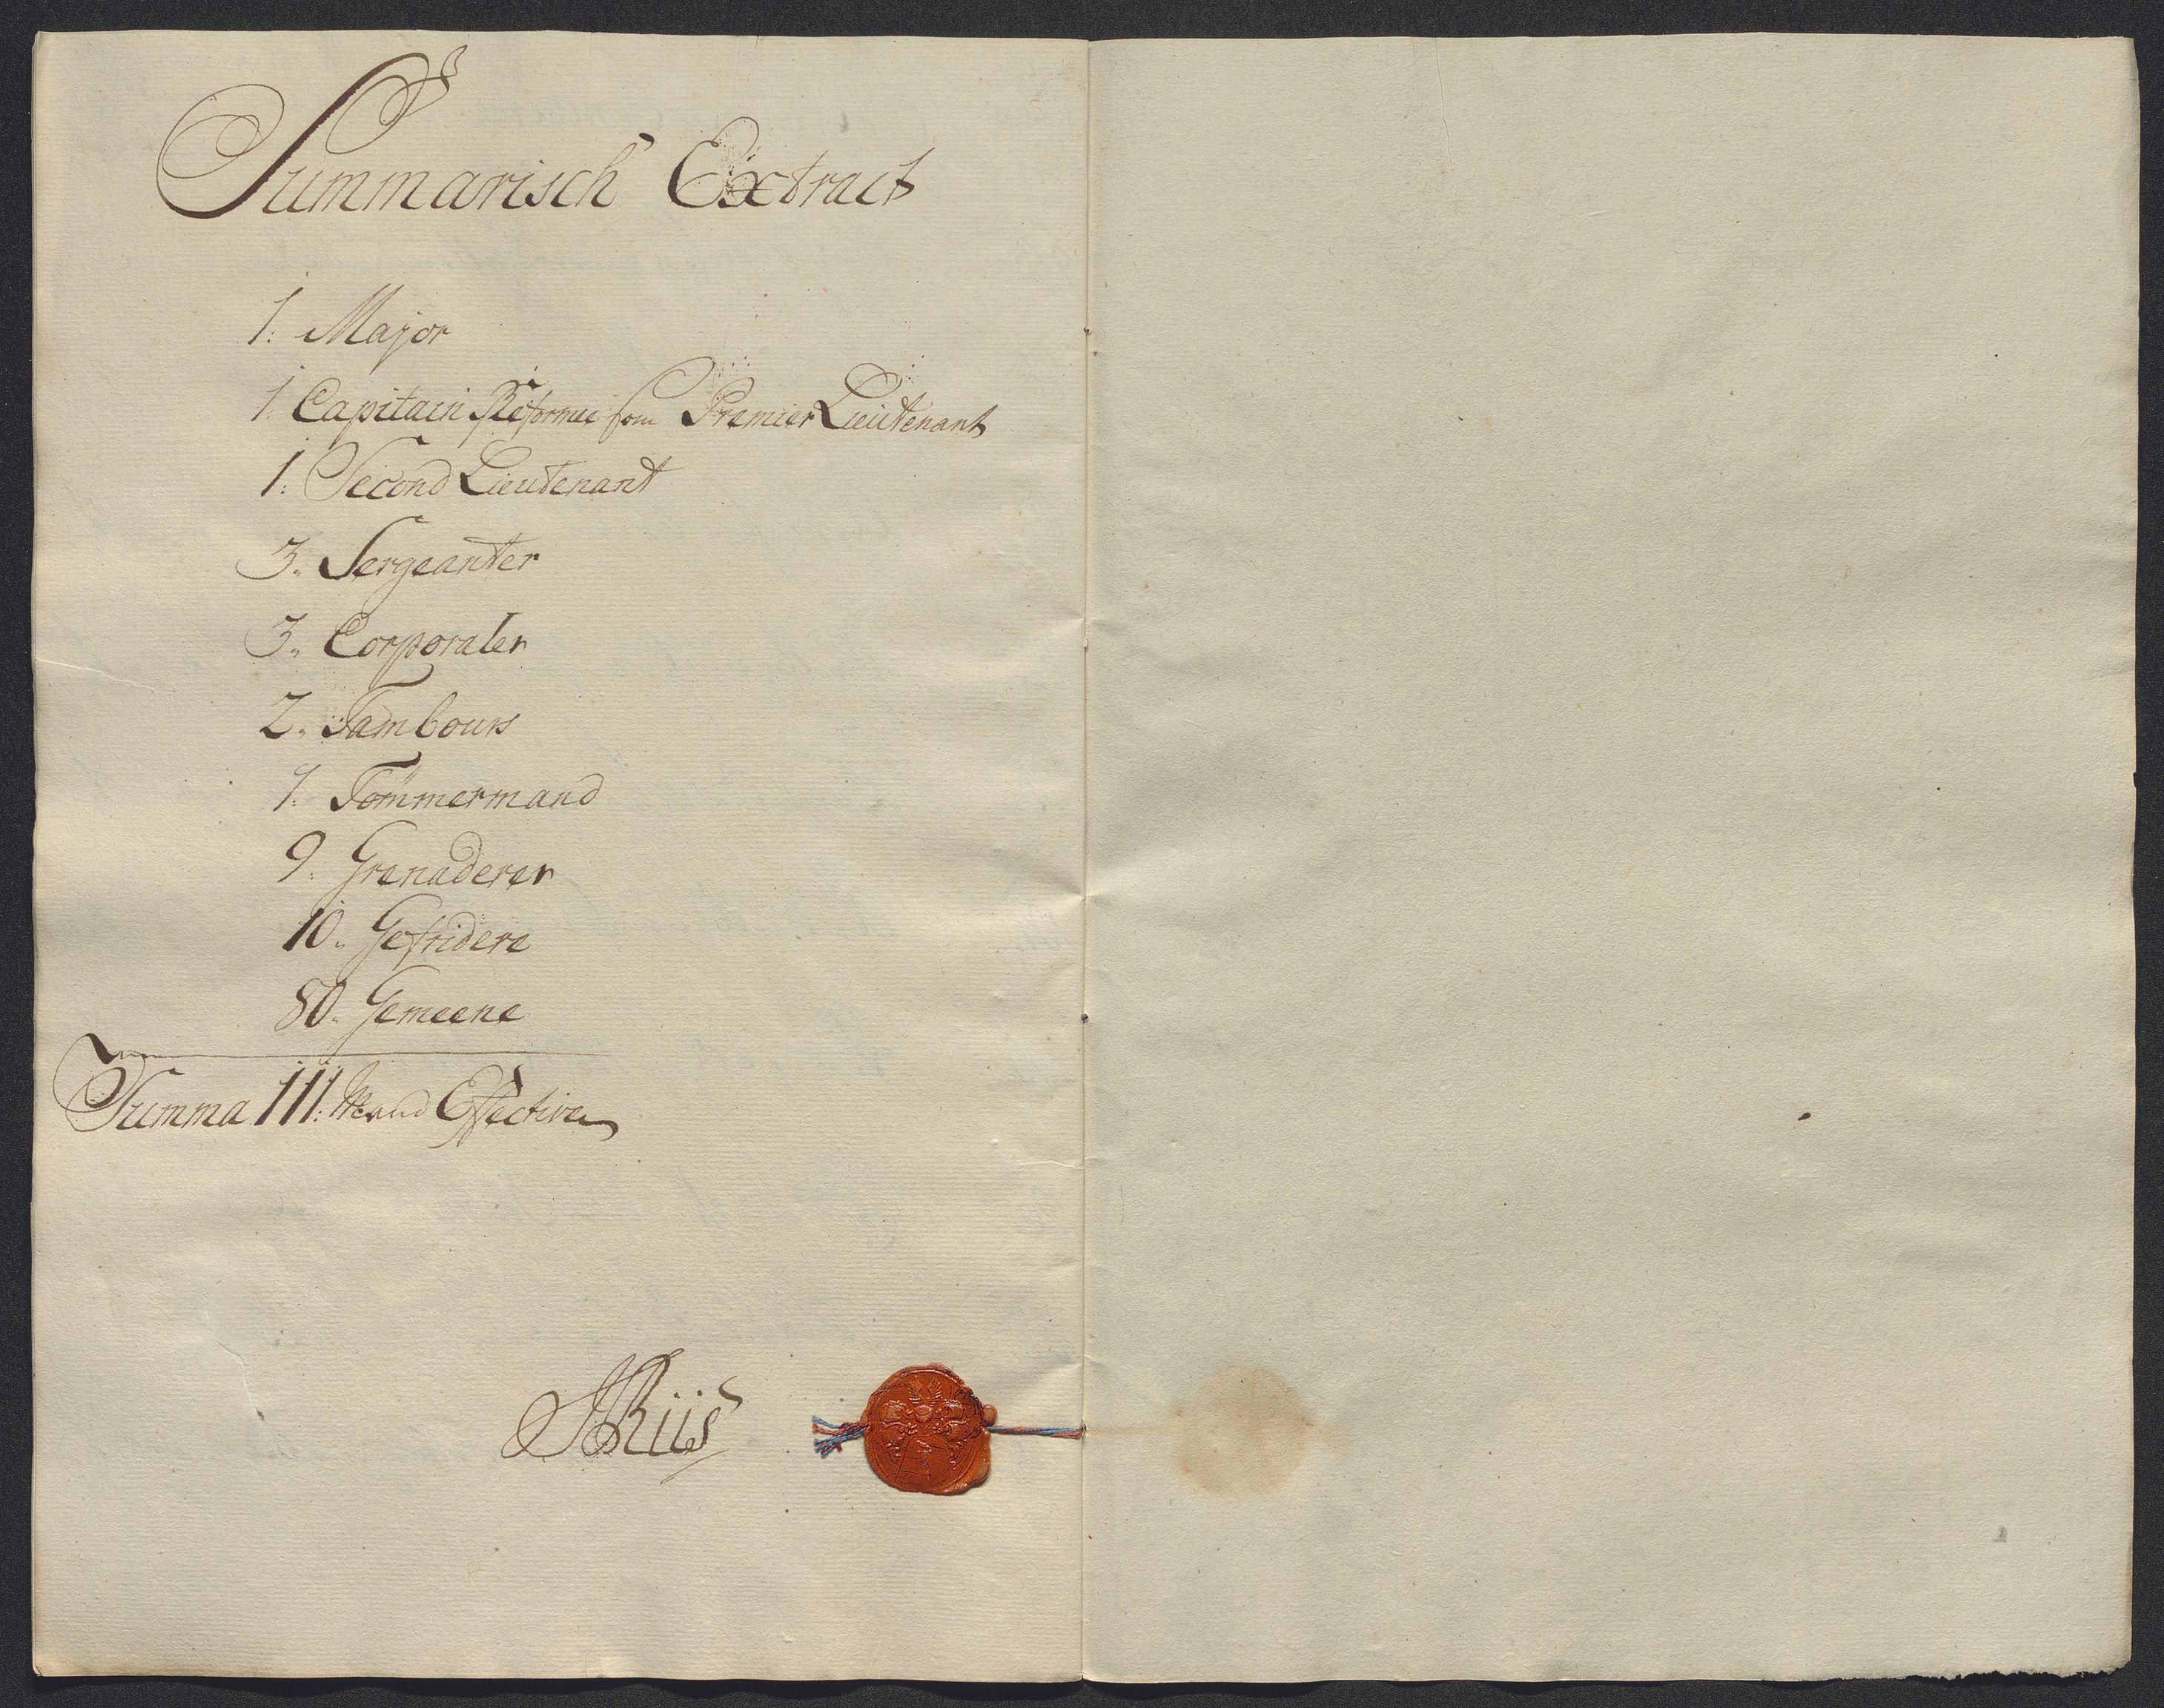 Summarisch Extract
1. Major
1. Capitain Reformee som Premier Lieutenant
1. Second Lieutenant
3. Sergeanter
3. Corporaler
2. Tambours
1. Tömmermand
9. Grenaderer
10. Gefridere
80. Gemeene
Summa 111. Mand Effective
Riis